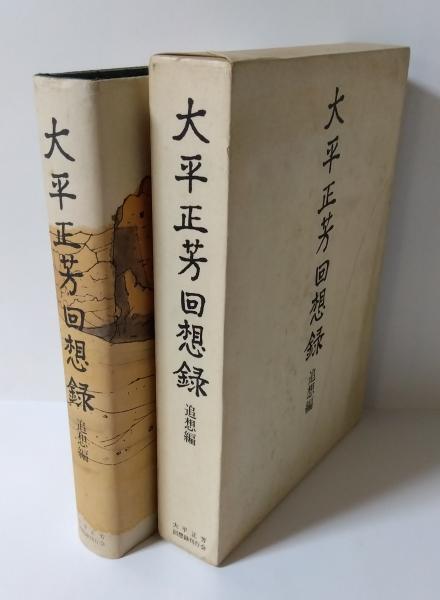 大平正芳回想録
追想編
大平正芳
回想録刊行会
大平正芳回想録
追想編
大平正芳
回想録刊行会
大平正芳回想録
追想編